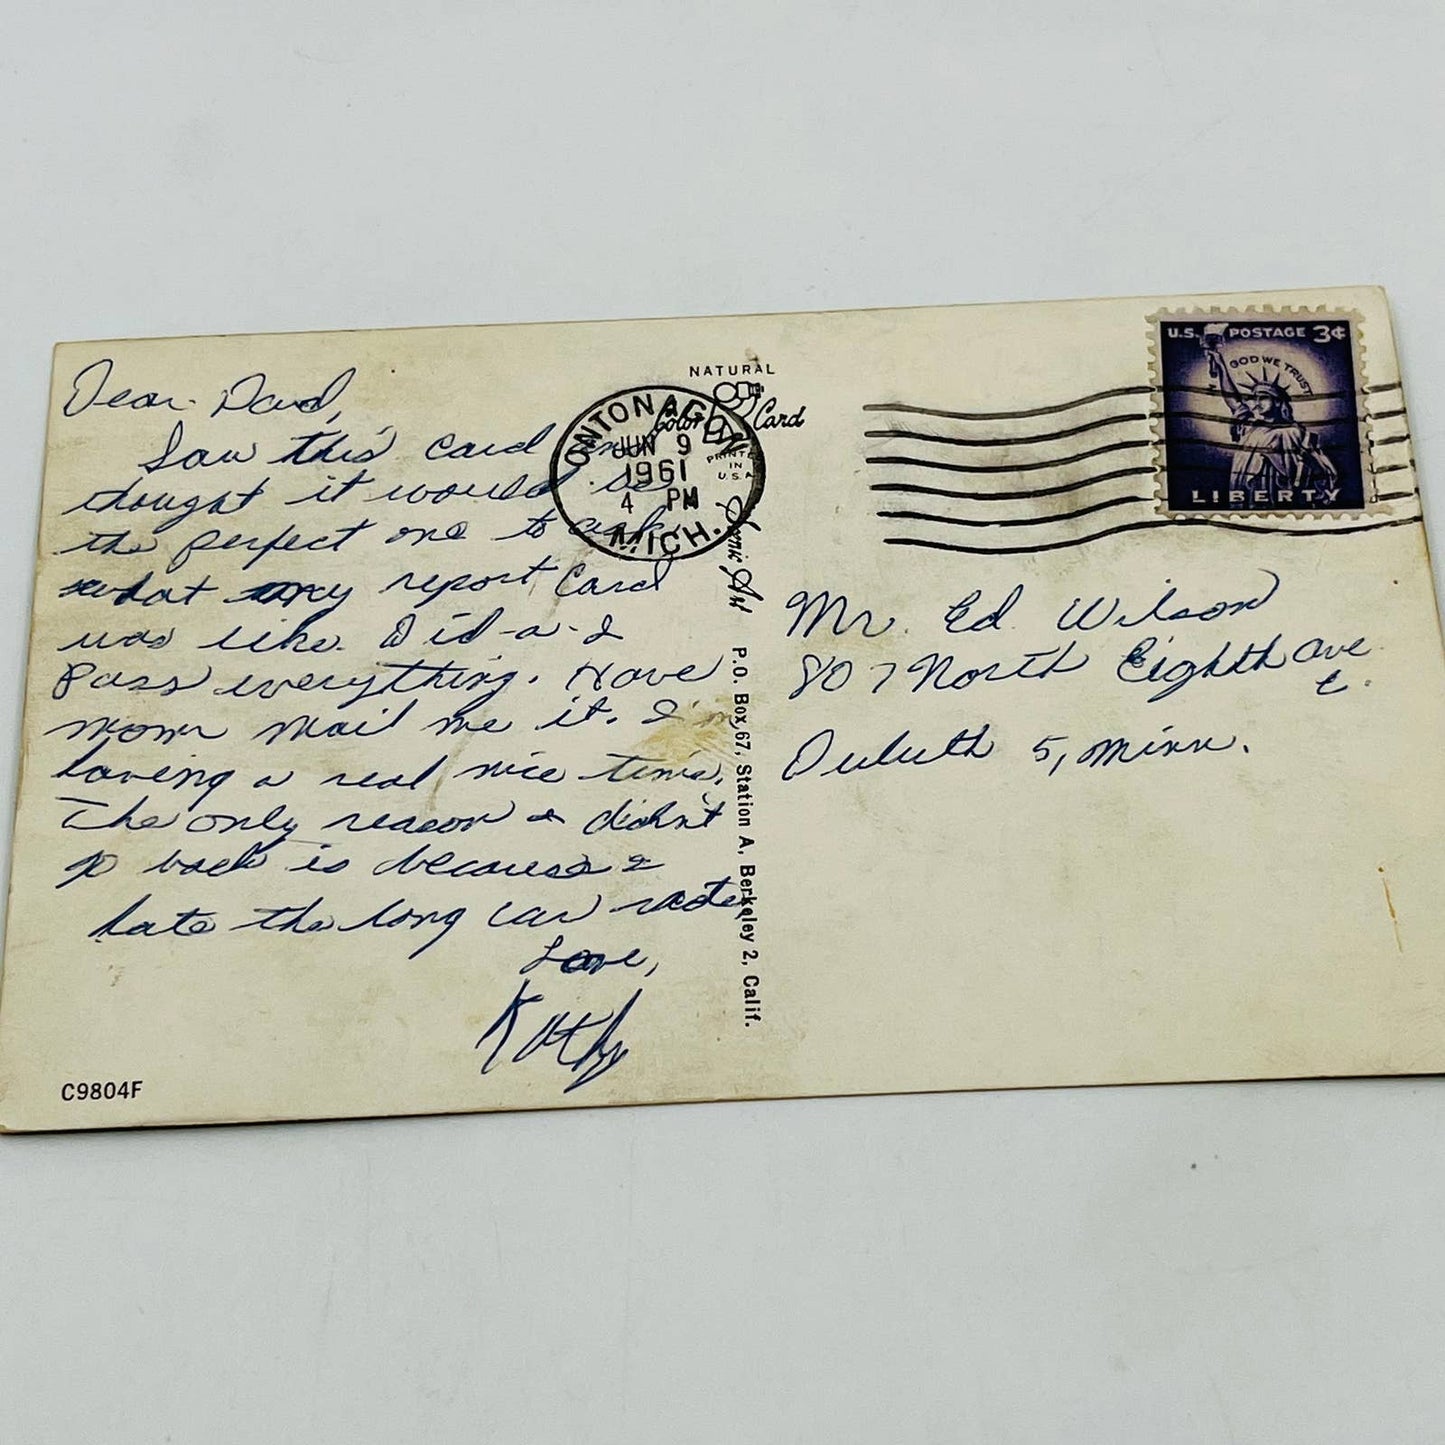 Dear Dad,
Saw this card and
thought it would be
the perfect one to ask
what my report card
was like. Did-a-I
pass everything. Have
mom mail me it. I'm
having a real nice time.
The only reason I didn't
go back is because I
hate the long car ride
Love,
Kathy
C9804F
NATURAL
Color Card
PRINTED
IN
U.S.A.
Scenic Art P.O. Box 67, Station A, Berkeley 2, Calif.
ONTONAGON
JUN 9
1961
4 PM
MICH.
U.S. POSTAGE 3¢
IN GOD WE TRUST
LIBERTY
Mr. Ed Wilson
807 North Eighth Ave
E.
Duluth 5, Minn.